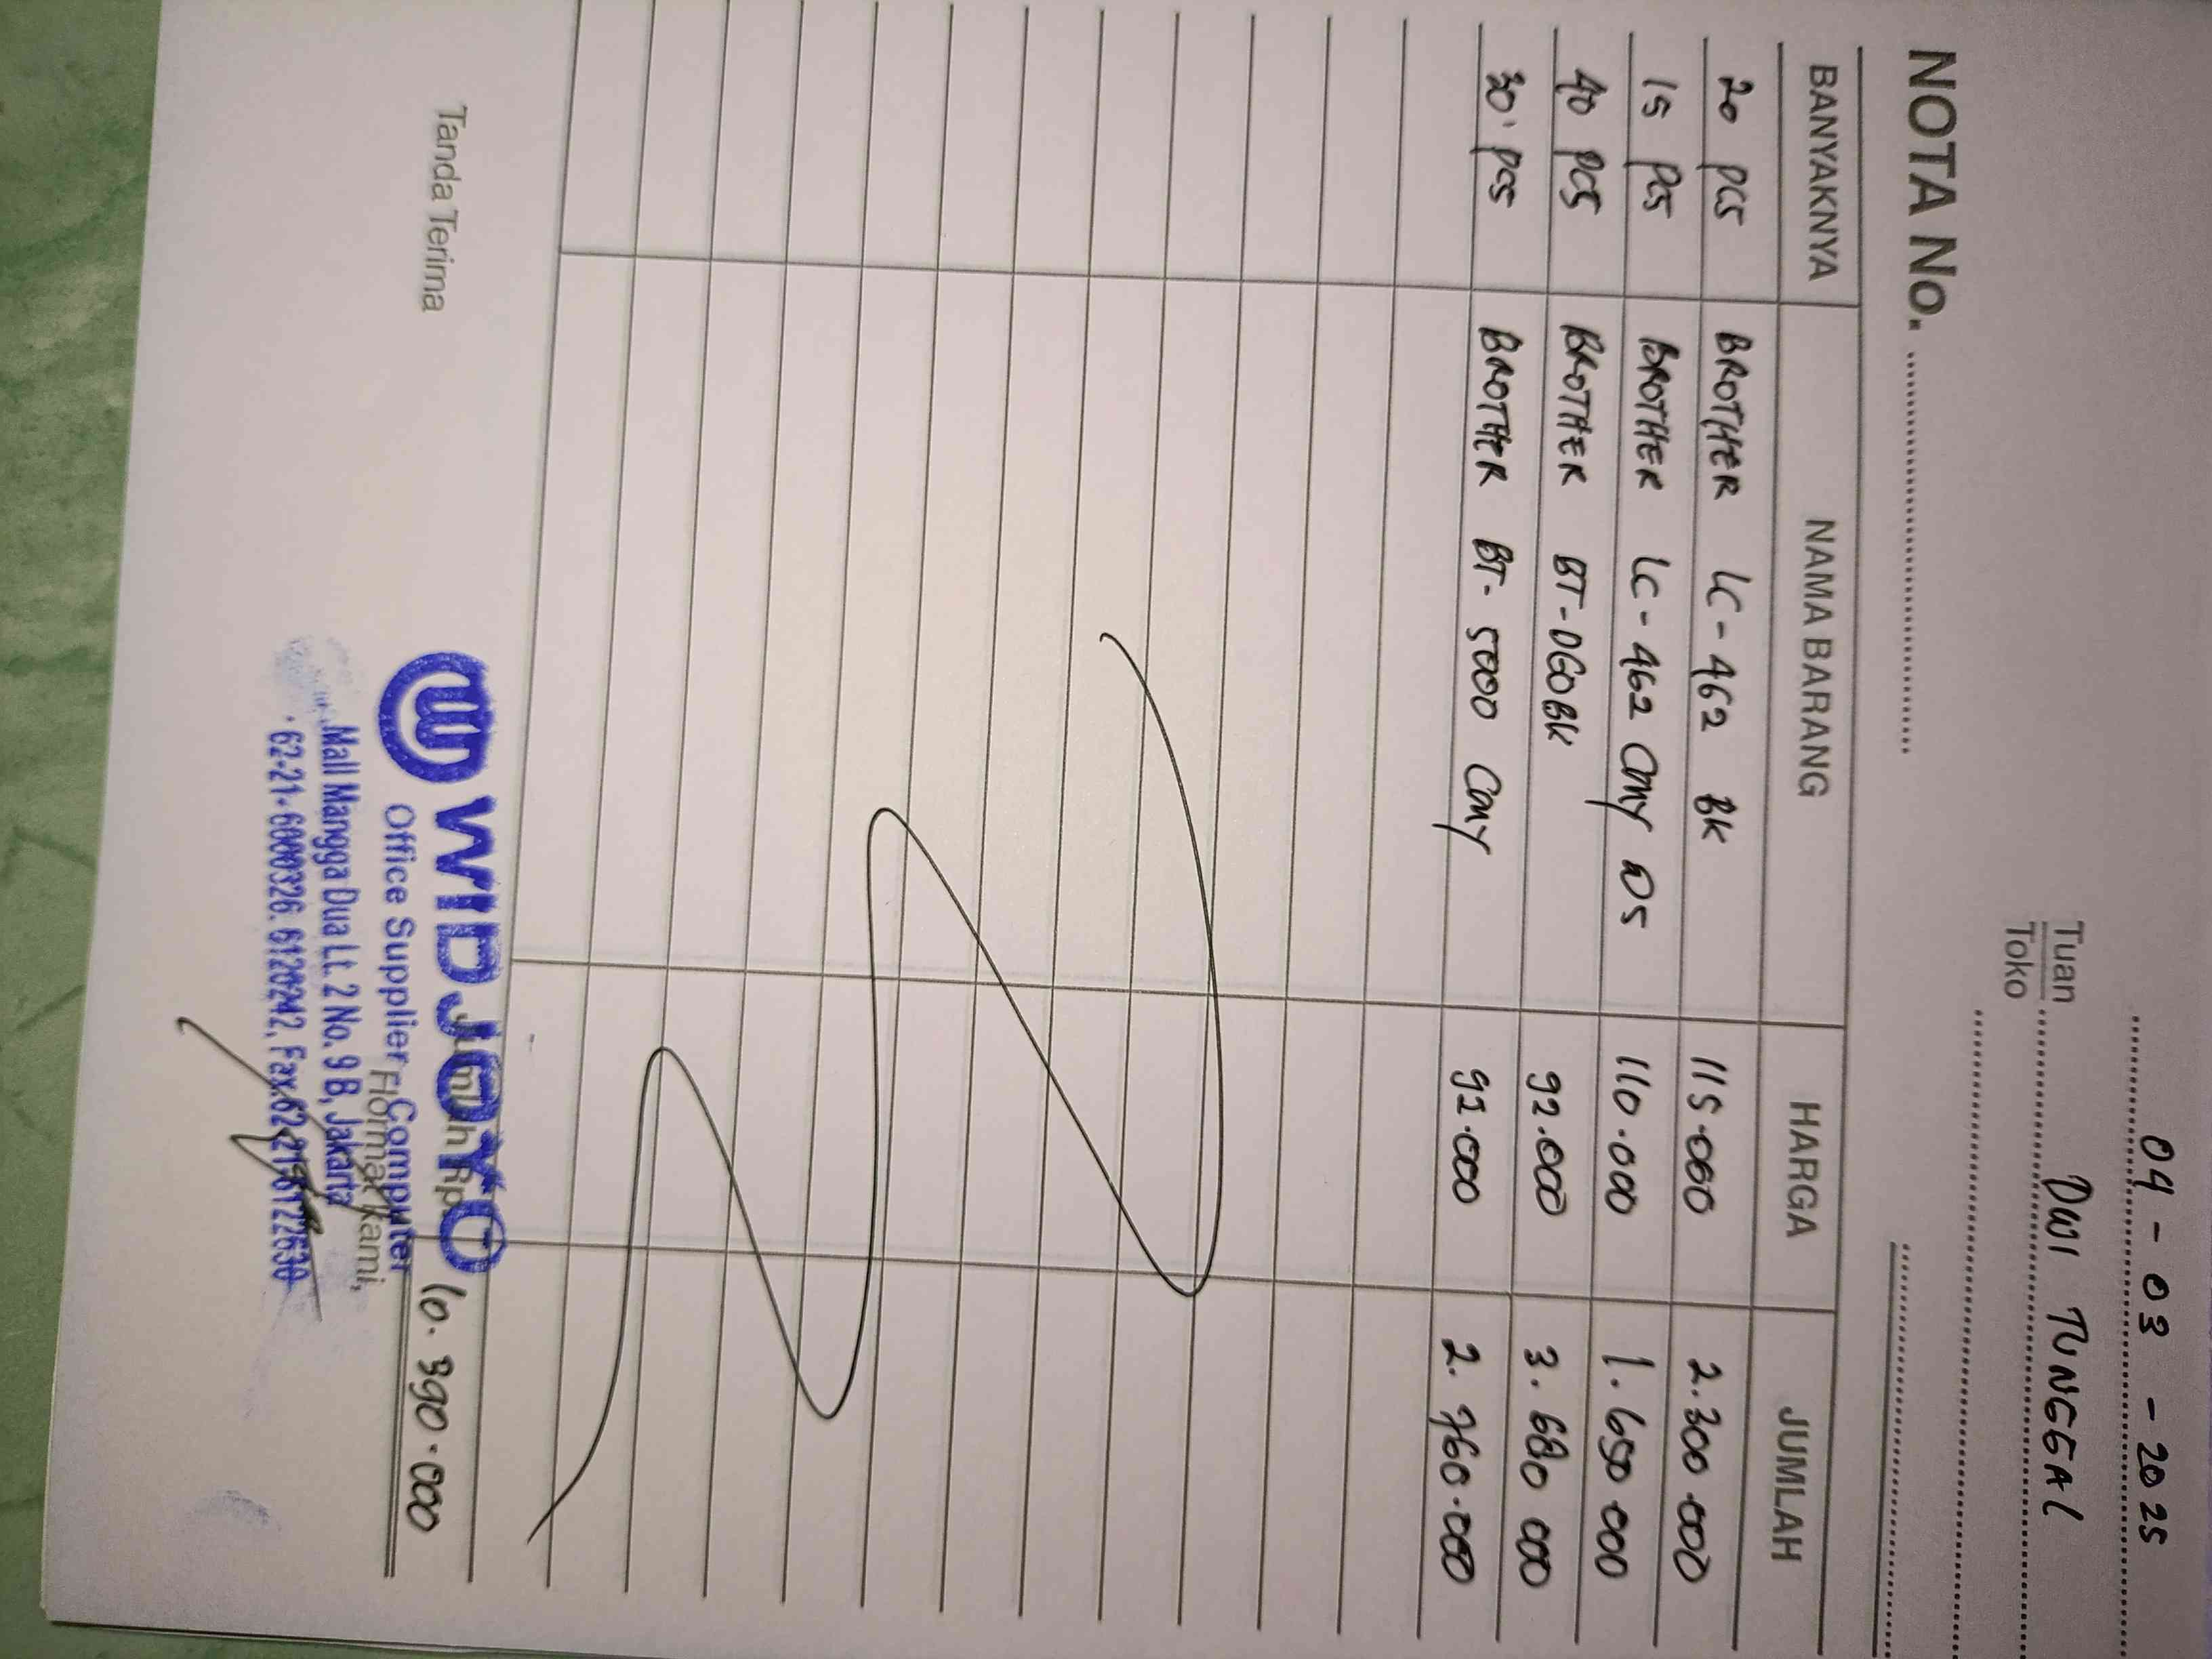 04 - 03 - 2025
Tuan DWI TUNGGAL
Toko
NOTA No.
BANYAKNYA NAMA BARANG HARGA JUMLAH
20 PCS BROTHER LC-462 BK 115.000 2.300.000
15 PCS BROTHER LC-462 CMY @5 110.000 1.650.000
40 PCS BROTHER BT-DG0BK 92.000 3.680.000
30 PCS BROTHER BT-5000 CMY 92.000 2.760.000
Jumlah Rp. 10.390.000
WIDJOYO
Tanda Terima Hormat kami,
Office Supplier - Computer
Mall Mangga Dua Lt. 2 No. 9 B, Jakarta
62-21-6000326. 6120242, Fax.62-21-6122630